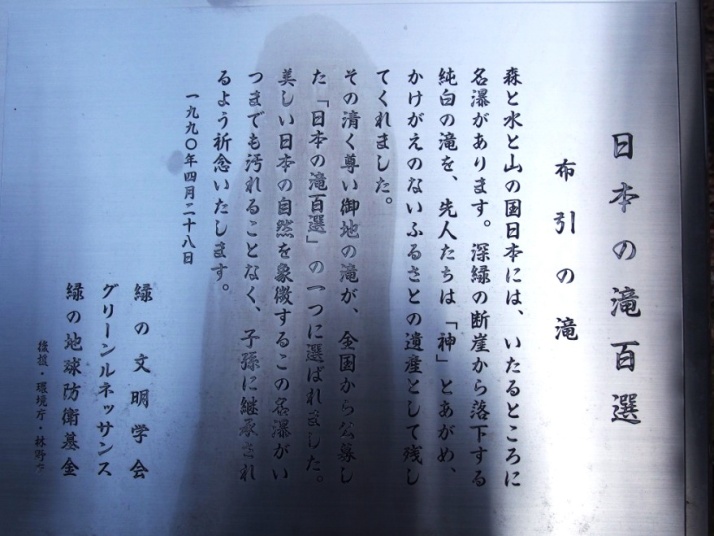 日本の滝百選
布引の滝
森と水と山の国日本には、いたるところに
名瀑があります。深緑の断崖から落下する
純白の滝を、先人たちは「神」とあがめ、
かけがえのないふるさとの遺産として残し
てくれました。
その清く尊い御地の滝が、全国から公募し
た「日本の滝百選」の一つに選ばれました。
美しい日本の自然を象徴するこの名瀑がい
つまでも汚れることなく、子孫に継承され
るよう祈念いたします。
一九九〇年四月二十八日
緑の文明学会
グリーンルネッサンス
緑の地球防衛基金
後援・環境庁・林野庁